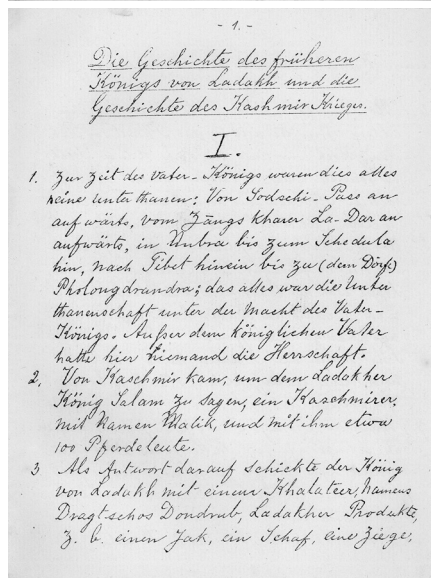 - 1. -
Die Geschichte des früheren
Königs von Ladakh und die
Geschichte des Kashmir Krieges.
I.
1. Zur Zeit des Vater-Königs waren dies alles
seine unterthanen: Von Sodschi-Pass an
aufwärts, vom Zangs kharer La-Dar an
aufwärts, in Nubra bis zum Schedula
hin, nach Tibet hinein bis zu (dem Dorf)
Pholongdrandra; das alles war die Unter
thanenschaft unter der Macht des Vater-
Königs. Außer dem königlichen Vater
hatte hier Niemand die Herrschaft.
2. Von Kaschmir kam, um dem Ladakher
König Salam zu sagen, ein Kaschmirer,
mit Namen Malik, und mit ihm etwa
100 Pferdeleute.
3 Als Antwort darauf schickte der König
von Ladakh mit einem Khalateer, Namens
Dragtschos Dondrub, Ladakher Produkte,
z. b. einen Jak, ein Schaf, eine Ziege,